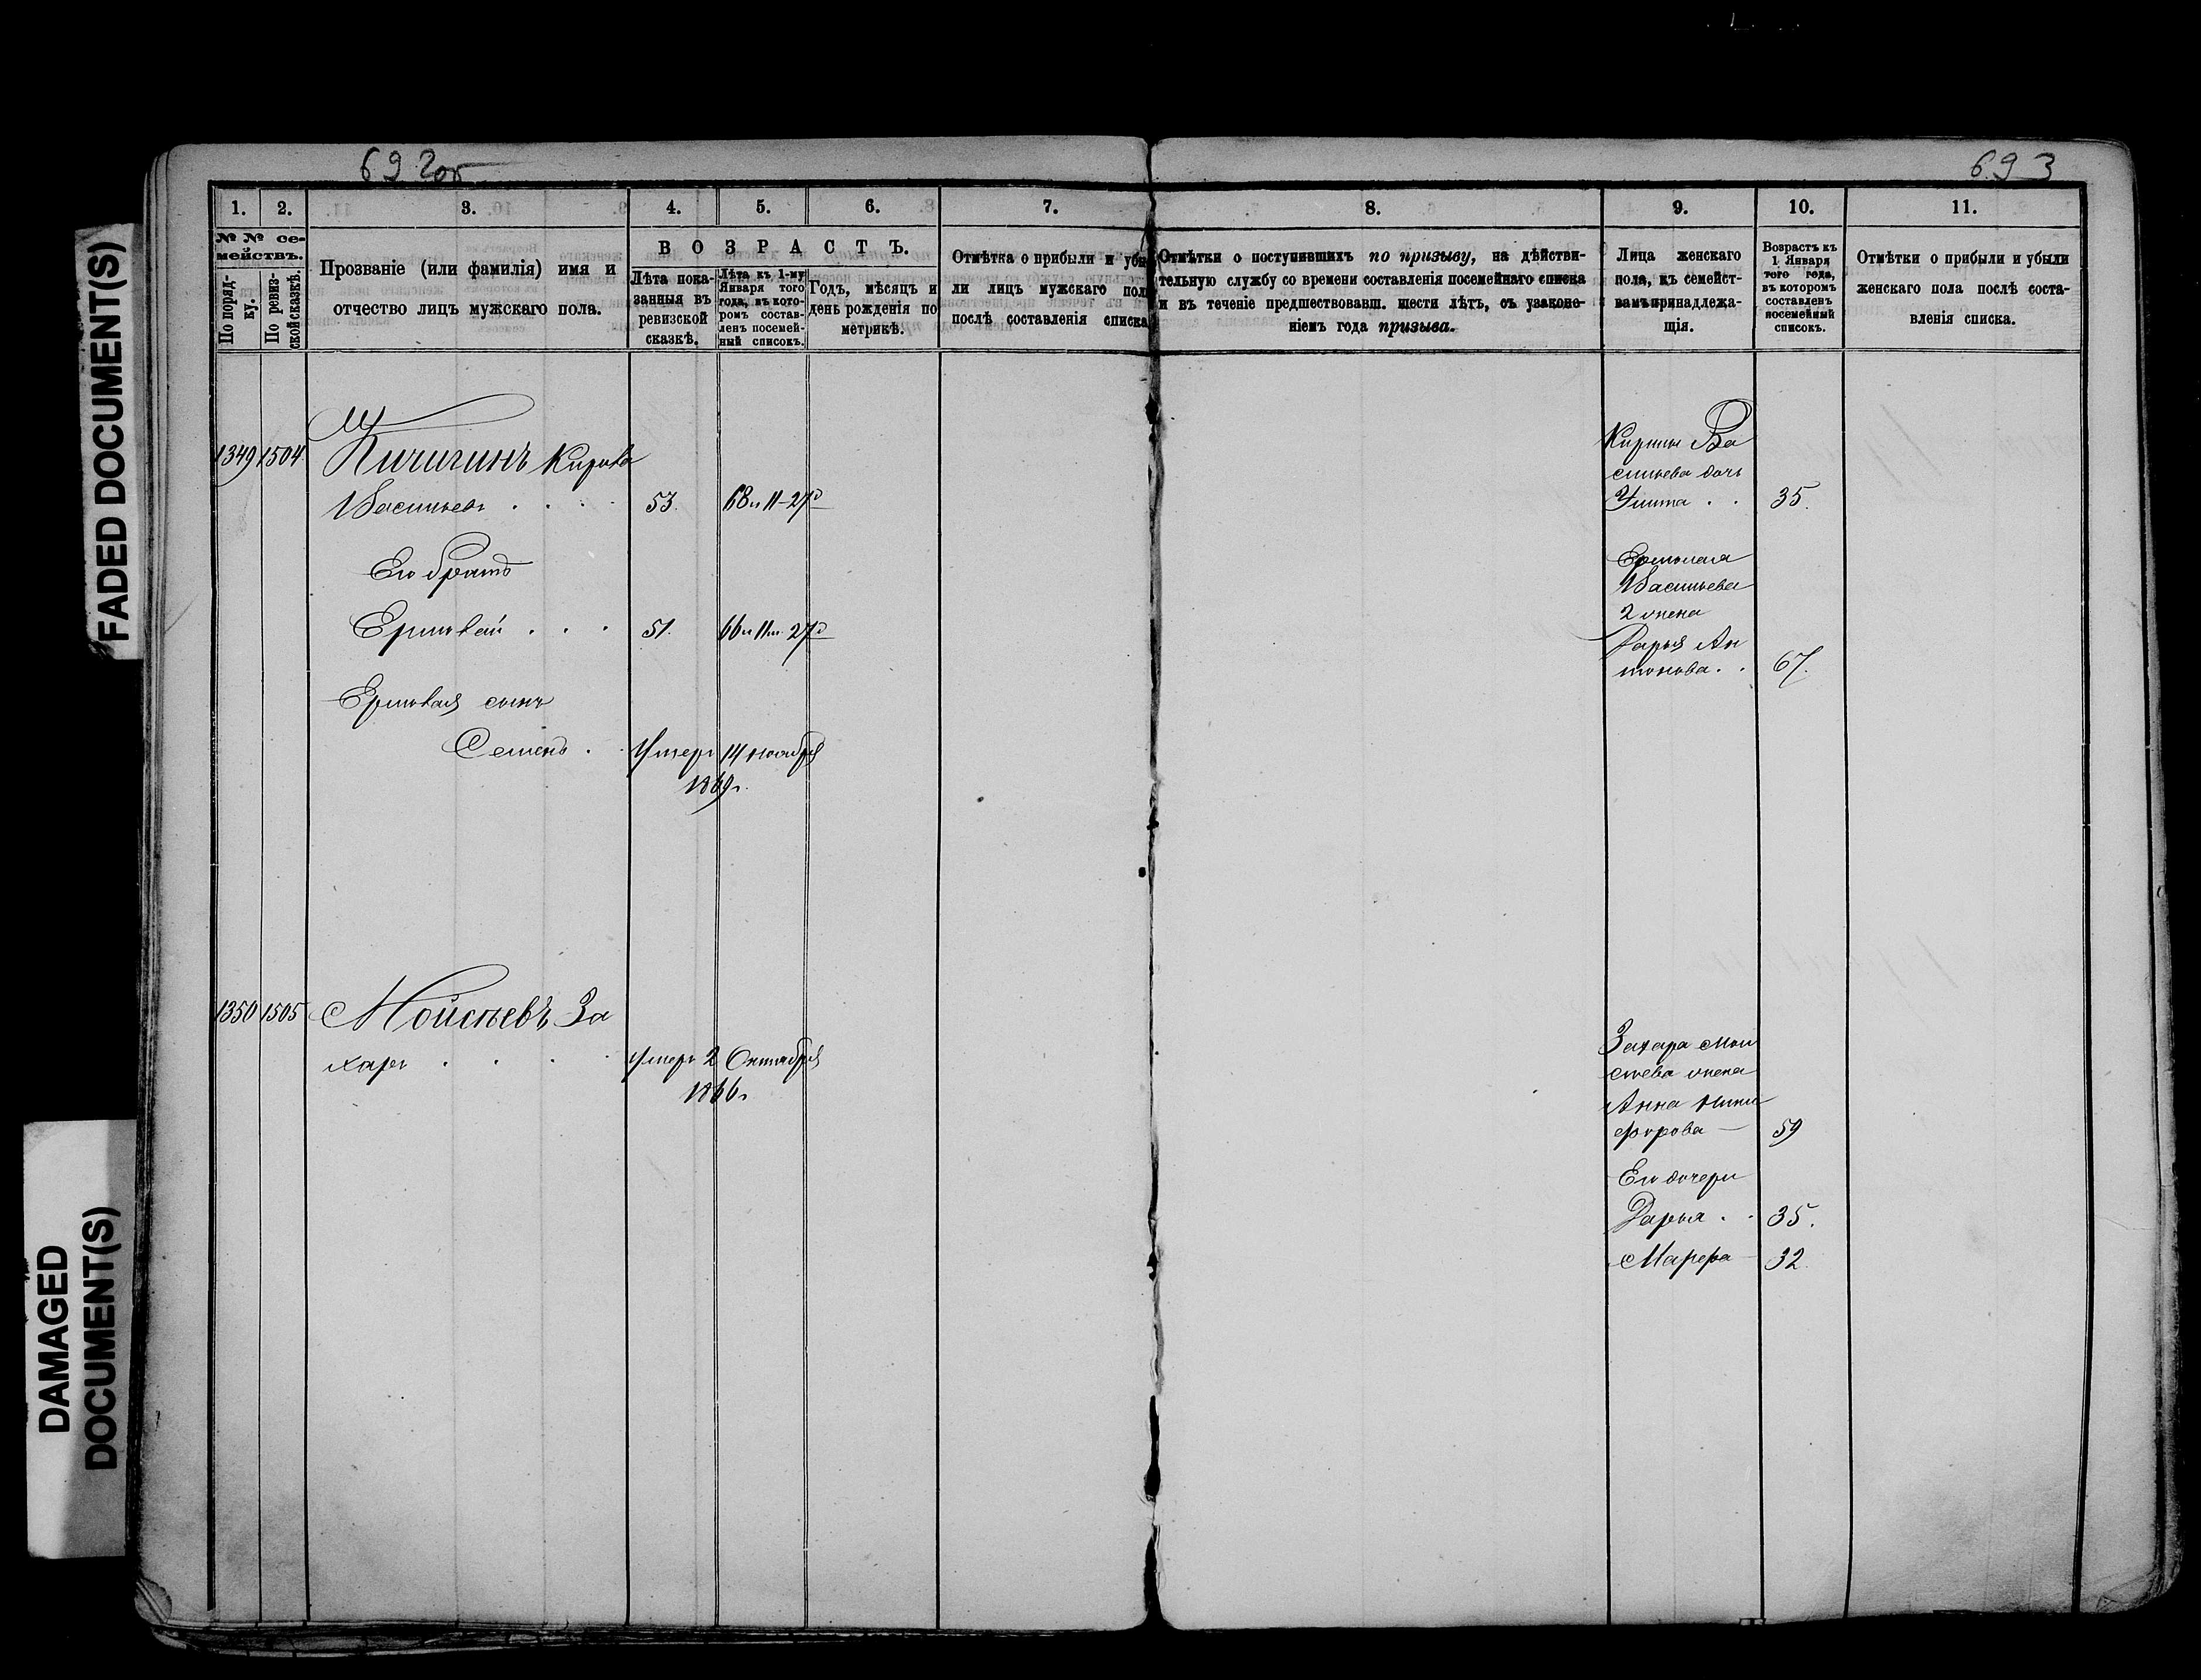 FADED DOCUMENT(S)
DAMAGED
DOCUMENT(S)
692об
693
1. 2. 3. 4. 5. 6. 7. 8. 9. 10. 11.
№ № се-
мействъ.
По поряд-
ку.
По ревиз-
ской сказкѣ.
Прозваніе (или фамилія) имя и
отчество лицъ мужскаго пола.
ВОЗРАСТЪ.
Лѣта пока-
занныя въ
ревизской
сказкѣ.
Лѣта къ 1-му
Января того
года, въ кото-
ромъ состав-
ленъ посемей-
ный списокъ.
Годъ, мѣсяцъ и
день рожденія по
метрикѣ.
Отмѣтка о прибыли и убы
ли лицъ мужскаго пол
послѣ составленія списка
Отмѣтки о поступившихъ по призыву, на дѣйстви-
тельную службу со времени составленія посемейнаго списка
и въ теченіе предшествовавш. шести лѣтъ, съ узаконе-
ніемъ года призыва.
Лица женскаго
пола, къ семейст-
вамъ принадлежа-
щія.
Возрастъ къ
1 Января
того года,
въ которомъ
составленъ
посемейный
списокъ.
Отмѣтки о прибыли и убыли
женскаго пола послѣ соста-
вленія списка.
1349 1504
Васильевъ . . . 53. 68 и 11-27д
Его братъ
Ермолай . . . 51. 66 и 11м. 27д
Ермолая сынъ
Семенъ . . Умеръ 14 ноября
1869г.
Ва
сильева дочь
35.
Ермолая
Васильева
2 жена
Дарья Ан
тонова . . 67.
1350 1505 Мойсѣевъ За
харъ . . . . Умеръ 2 Октября
1866г
Захара Мои
сѣева жена
Анна Ники
форова — 59
Его дочери
Дарья . . 35.
Марфа — 32.